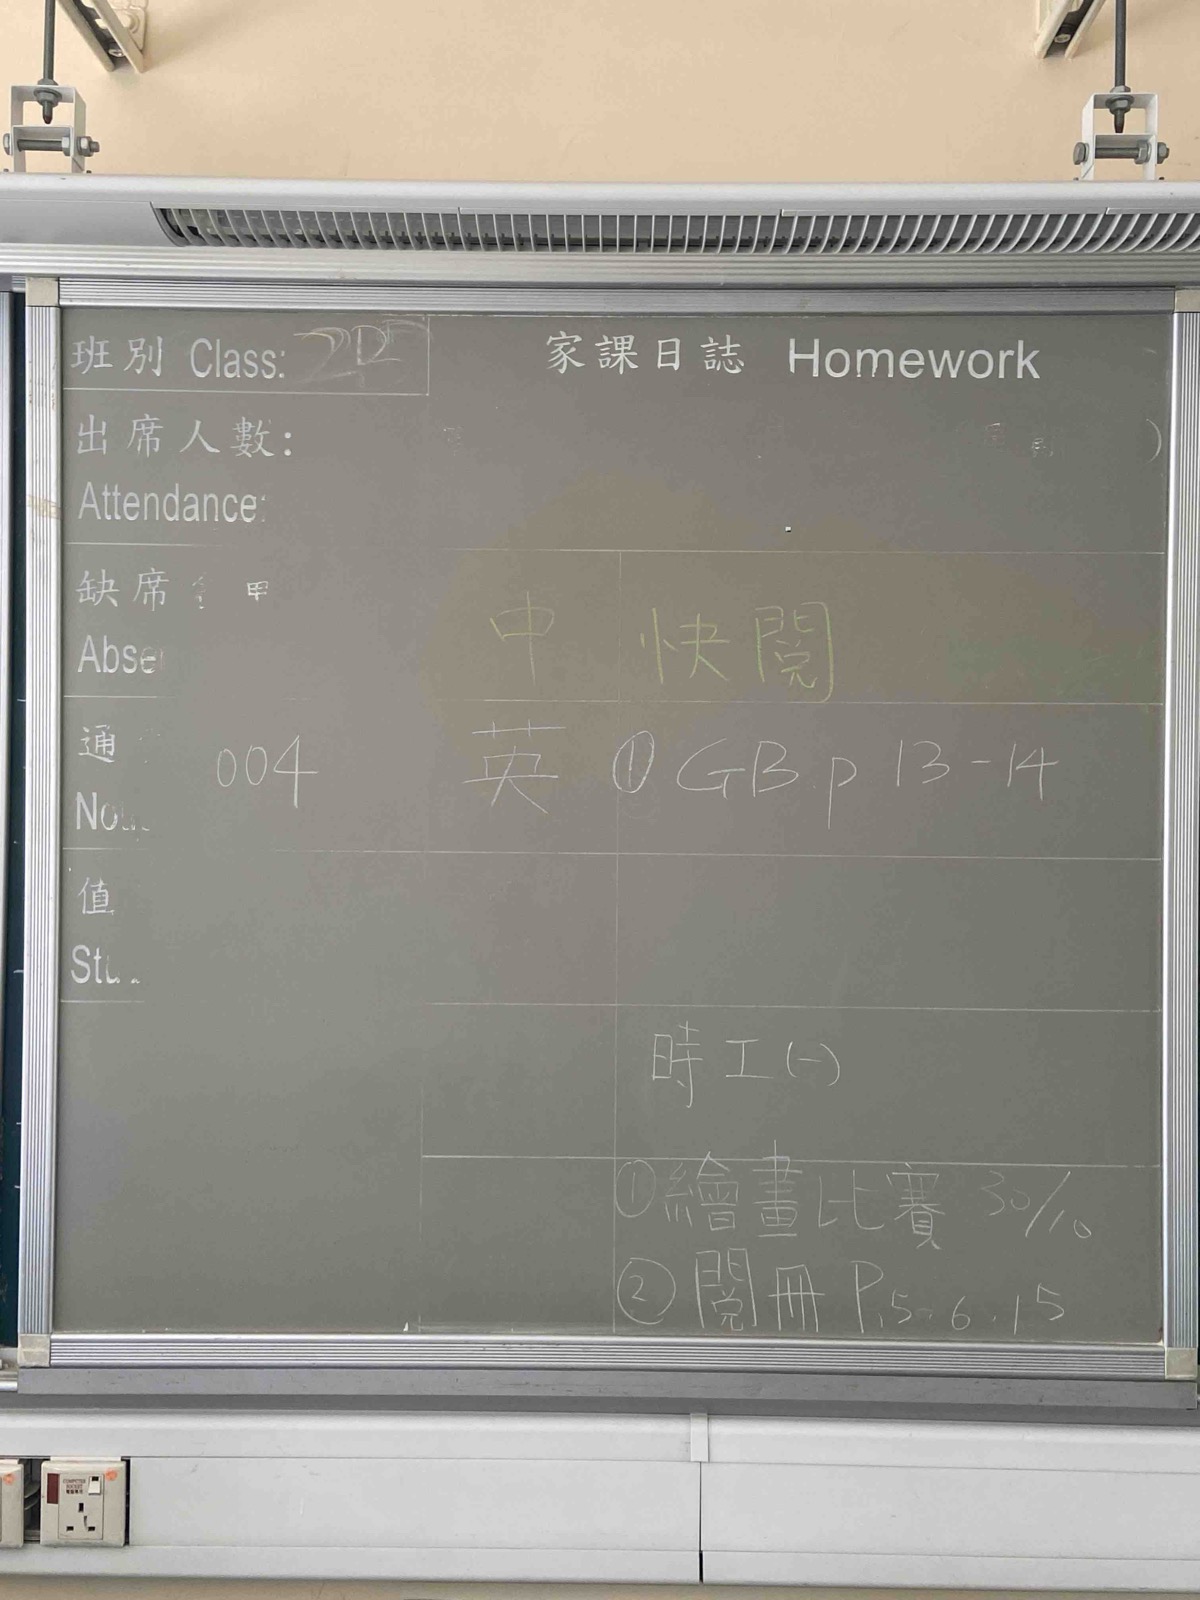 班別 Class:
家課日誌 Homework
出席人數:
Attendance:
缺席
中 快閱
通
004
英 ① GB p 13-14
值
時工(一)
①繪畫比賽 30/10
②閱冊 P.5.6.15
COMPUTER
SOCKET